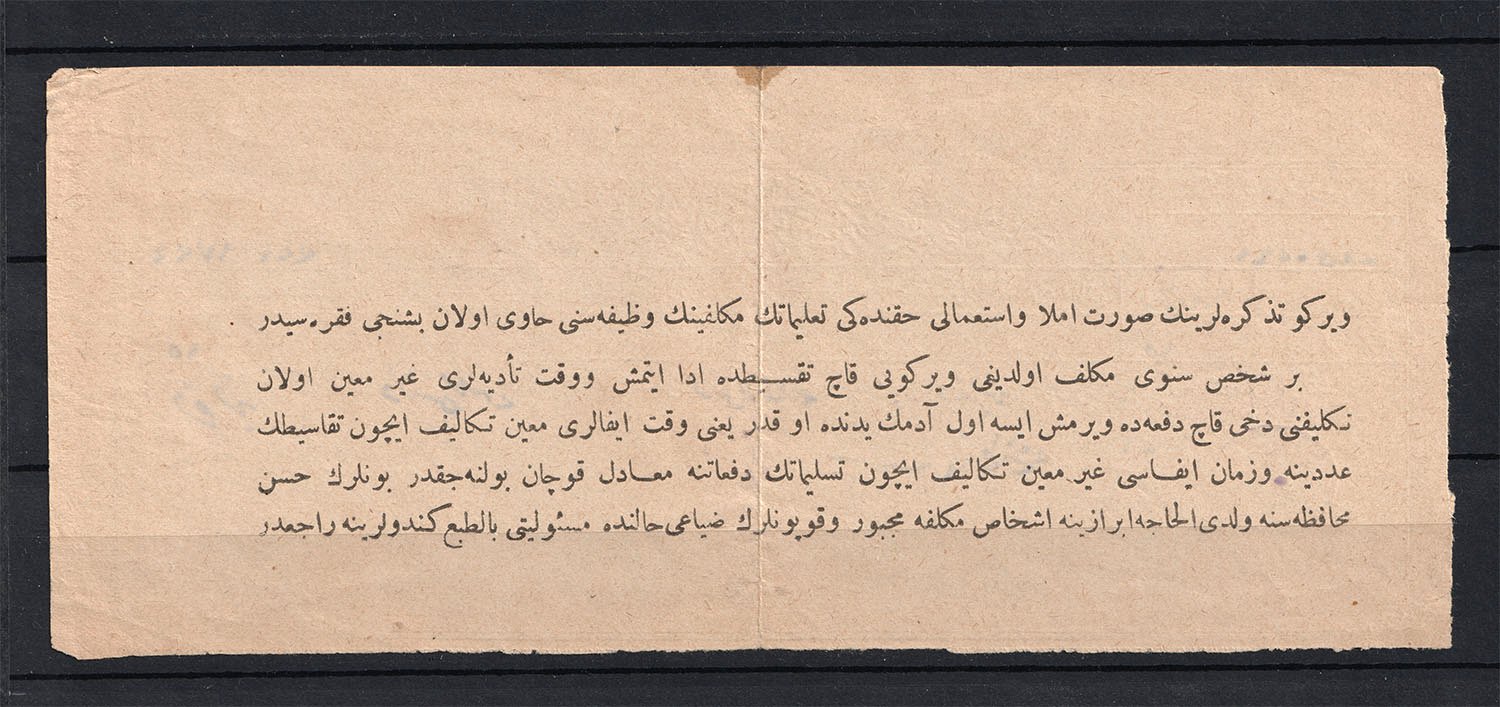 ویركو تذكره‌لرینك صورت املا واستعمالی حقنده‌كی تعلیماتك مكلفینك وظیفه‌سنی حاوی اولان بشنجی فقره‌سیدر
بر شخص سنوی مكلف اولدیغی ویركویی قاچ تقسیطده ادا ایتمش ووقت تأدیه‌لری غیر معین اولان
تكلیفنی دخی قاچ دفعه‌ده ویرمش ایسه اول آدمك یدنده او قدر یعنی وقت ایفالری معین تكالیف ایچون تقاسیطك
عددینه وزمان ایفاسی غیر معین تكالیف ایچون تسلیماتك دفعاتنه معادل قوچان بولنه‌جقدر بونلرك حسن
محافظه‌سنه ولدی الحاجه ابرازینه اشخاص مكلفه مجبور وقوپونلرك ضیاعی حالنده مسئولیتی بالطبع كندولرینه راجعدر